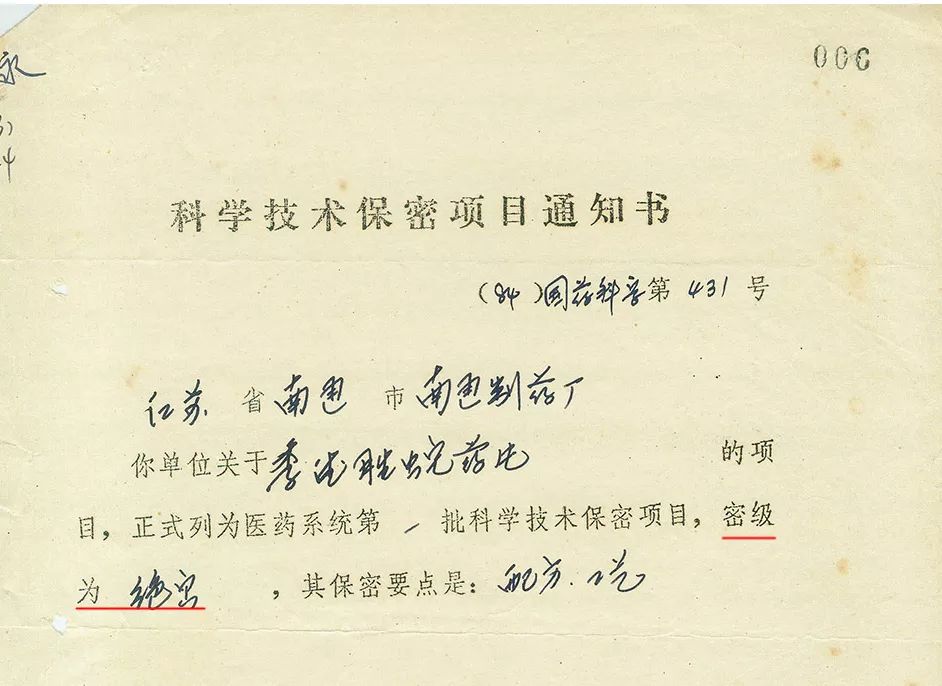 永
006
科学技术保密项目通知书
(84)国药科字第 431 号
江苏 省 南通 市 南通制药厂
你单位关于季德胜蛇药片 的项
目，正式列为医药系统第 一 批科学技术保密项目，密级
为 绝密 ，其保密要点是：配方．工艺